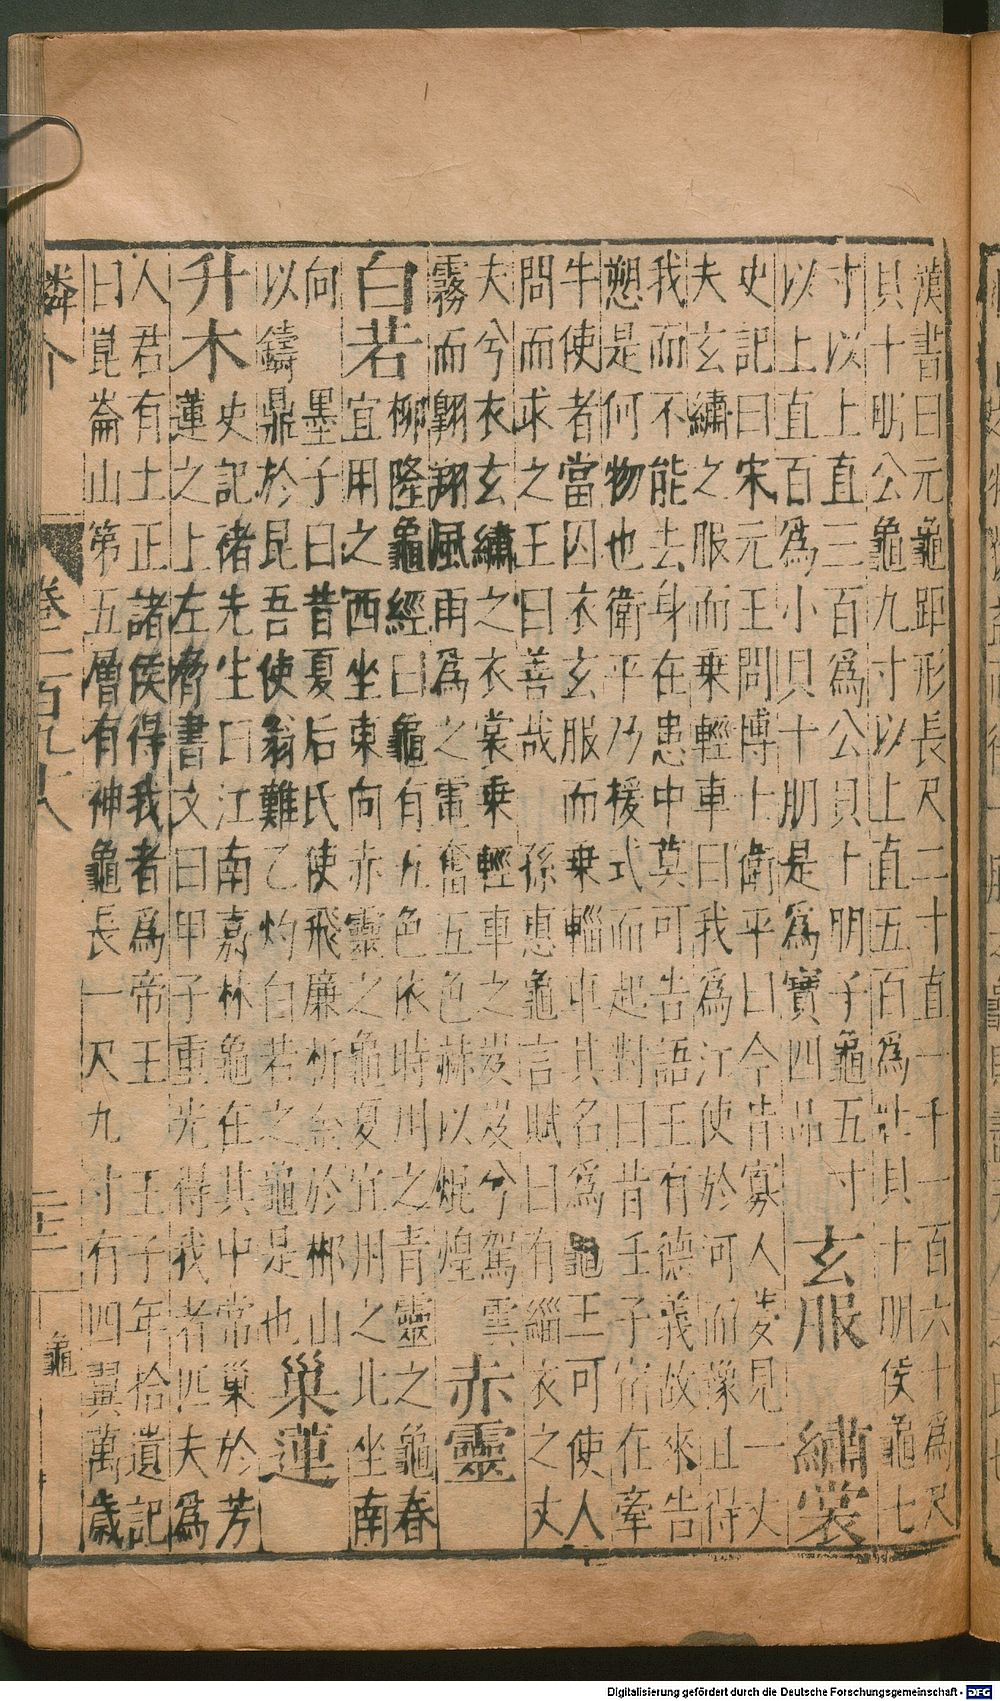 漢書曰元龜距形長尺二寸直一千一百六十為尺
貝十朋公龜九寸以上直五百為壯貝十朋侯龜七
寸以上直三百為公貝十朋子龜五寸
以上直百為小貝十朋是為寶四品
玄服 繡裳
史記曰宋元王問博士衛平曰今昔寡人夢見一丈
夫玄繡之服而乗輕車曰我為江使於河而豫且得
我而不能去身在患中莫可告語王有德義故來告
愬是何物也衛平乃援式而起對曰昔壬子宿在牽
牛使者當囚衣玄服而乗輜車其名為龜王可使人
問而求之王曰善哉 孫惠龜言賦曰有緇衣之丈
夫兮衣玄繡之衣裳乗輕車之岌岌兮駕雲
霧而翱翔風雨為之電奮五色赫以焜煌
赤靈
白若
柳隆龜經曰龜有五色依時用之青靈之龜春
宜用之西坐東向赤靈之龜夏宜用之北坐南
向 墨子曰昔夏后氏使飛廉析金於郴山
以鑄鼎於昆吾使翁難乙灼白若之龜是也
巢蓮
升木
史記褚先生曰江南嘉林龜在其中常巢於芳
蓮之上左脅書文曰甲子重光得我者匹夫為
人君有土正諸侯得我者為帝王 王子年拾遺記
曰崑崙山第五層有神龜長一尺九寸有四翼萬歲
鱗介
龜
Digitalisierung gefördert durch die Deutsche Forschungsgemeinschaft - DFG